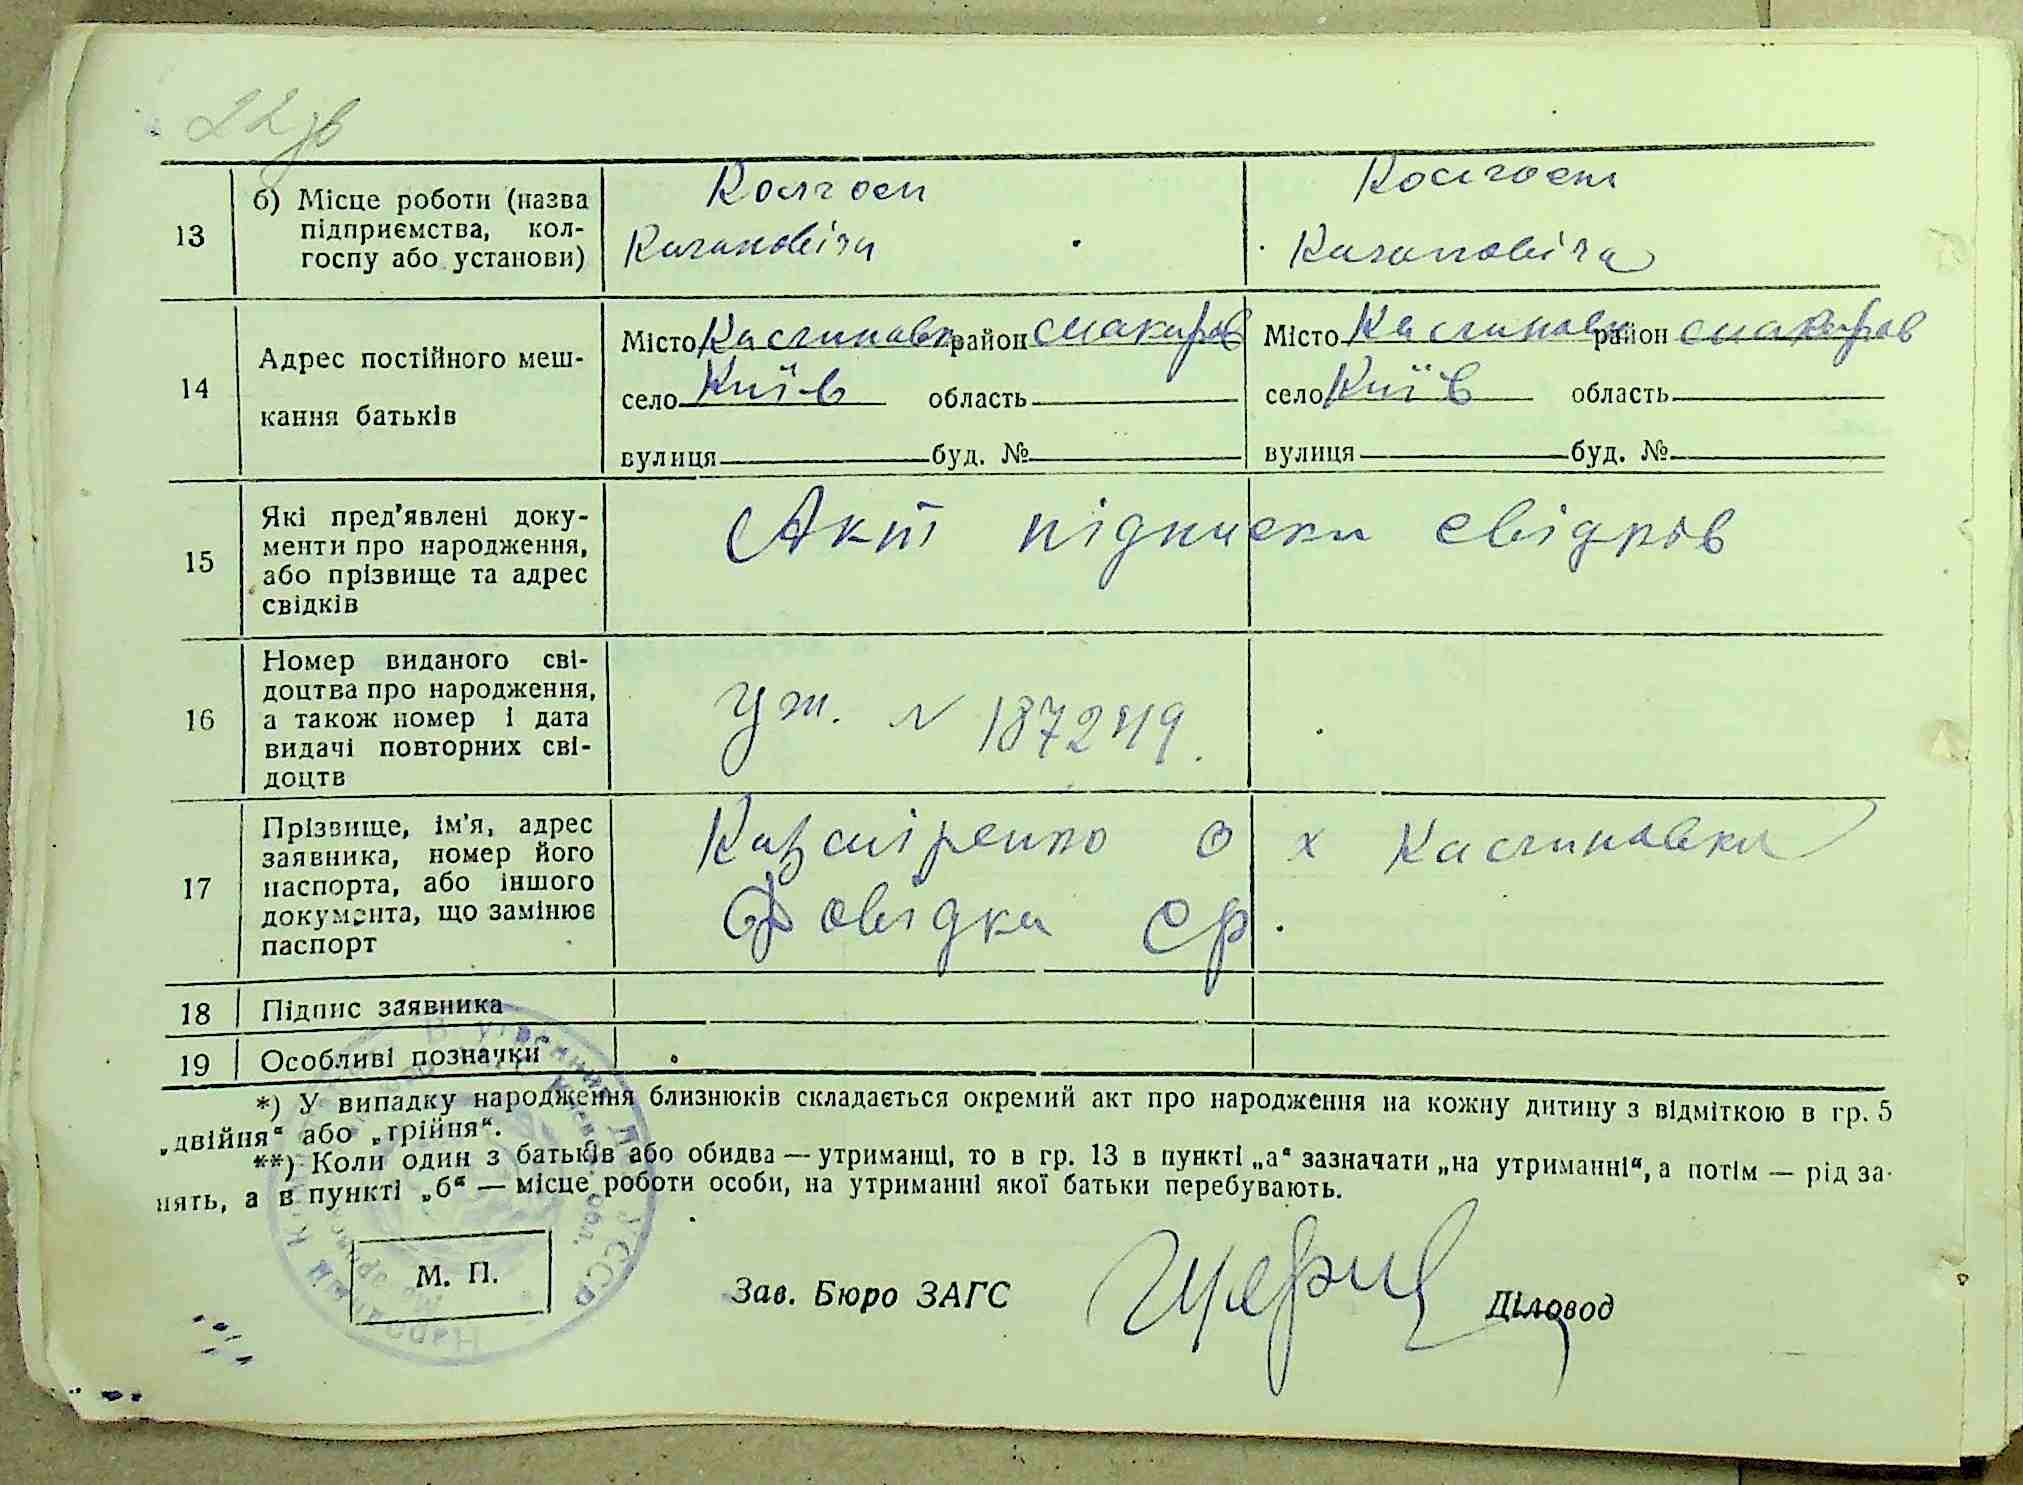 22 зв
13
б) Місце роботи (назва
підприємства, кол-
госпу або установи)
Колгосп
Кагановіча
Колгосп
Кагановіча
14
Адрес постійного меш-
кання батьків
Місто Калиновка район Макарів
село Київ область
вулиця буд. №
Місто Калиновка район Макарів
село Київ область
вулиця буд. №
15
Які пред’явлені доку-
менти про народження,
або прізвище та адрес
свідків
Акт підписки свідків
16
Номер виданого сві-
доцтва про народження,
а також номер і дата
видачі повторних сві-
доцтв
N 187249.
17
Прізвище, ім’я, адрес
заявника, номер його
паспорта, або іншого
документа, що замінює
паспорт
х Калиновка
Довідка ср.
18 Підпис заявника
19 Особливі позначки
*) У випадку народження близнюків складається окремий акт про народження на кожну дитину з відміткою в гр. 5
„двійня“ або „трійня“.
**) Коли один з батьків або обидва — утриманці, то в гр. 13 в пункті „а“ зазначати „на утриманні“, а потім — рід за-
нять, а в пункті „б“ — місце роботи особи, на утриманні якої батьки перебувають.
М. П.
Зав. Бюро ЗАГС
Діловод